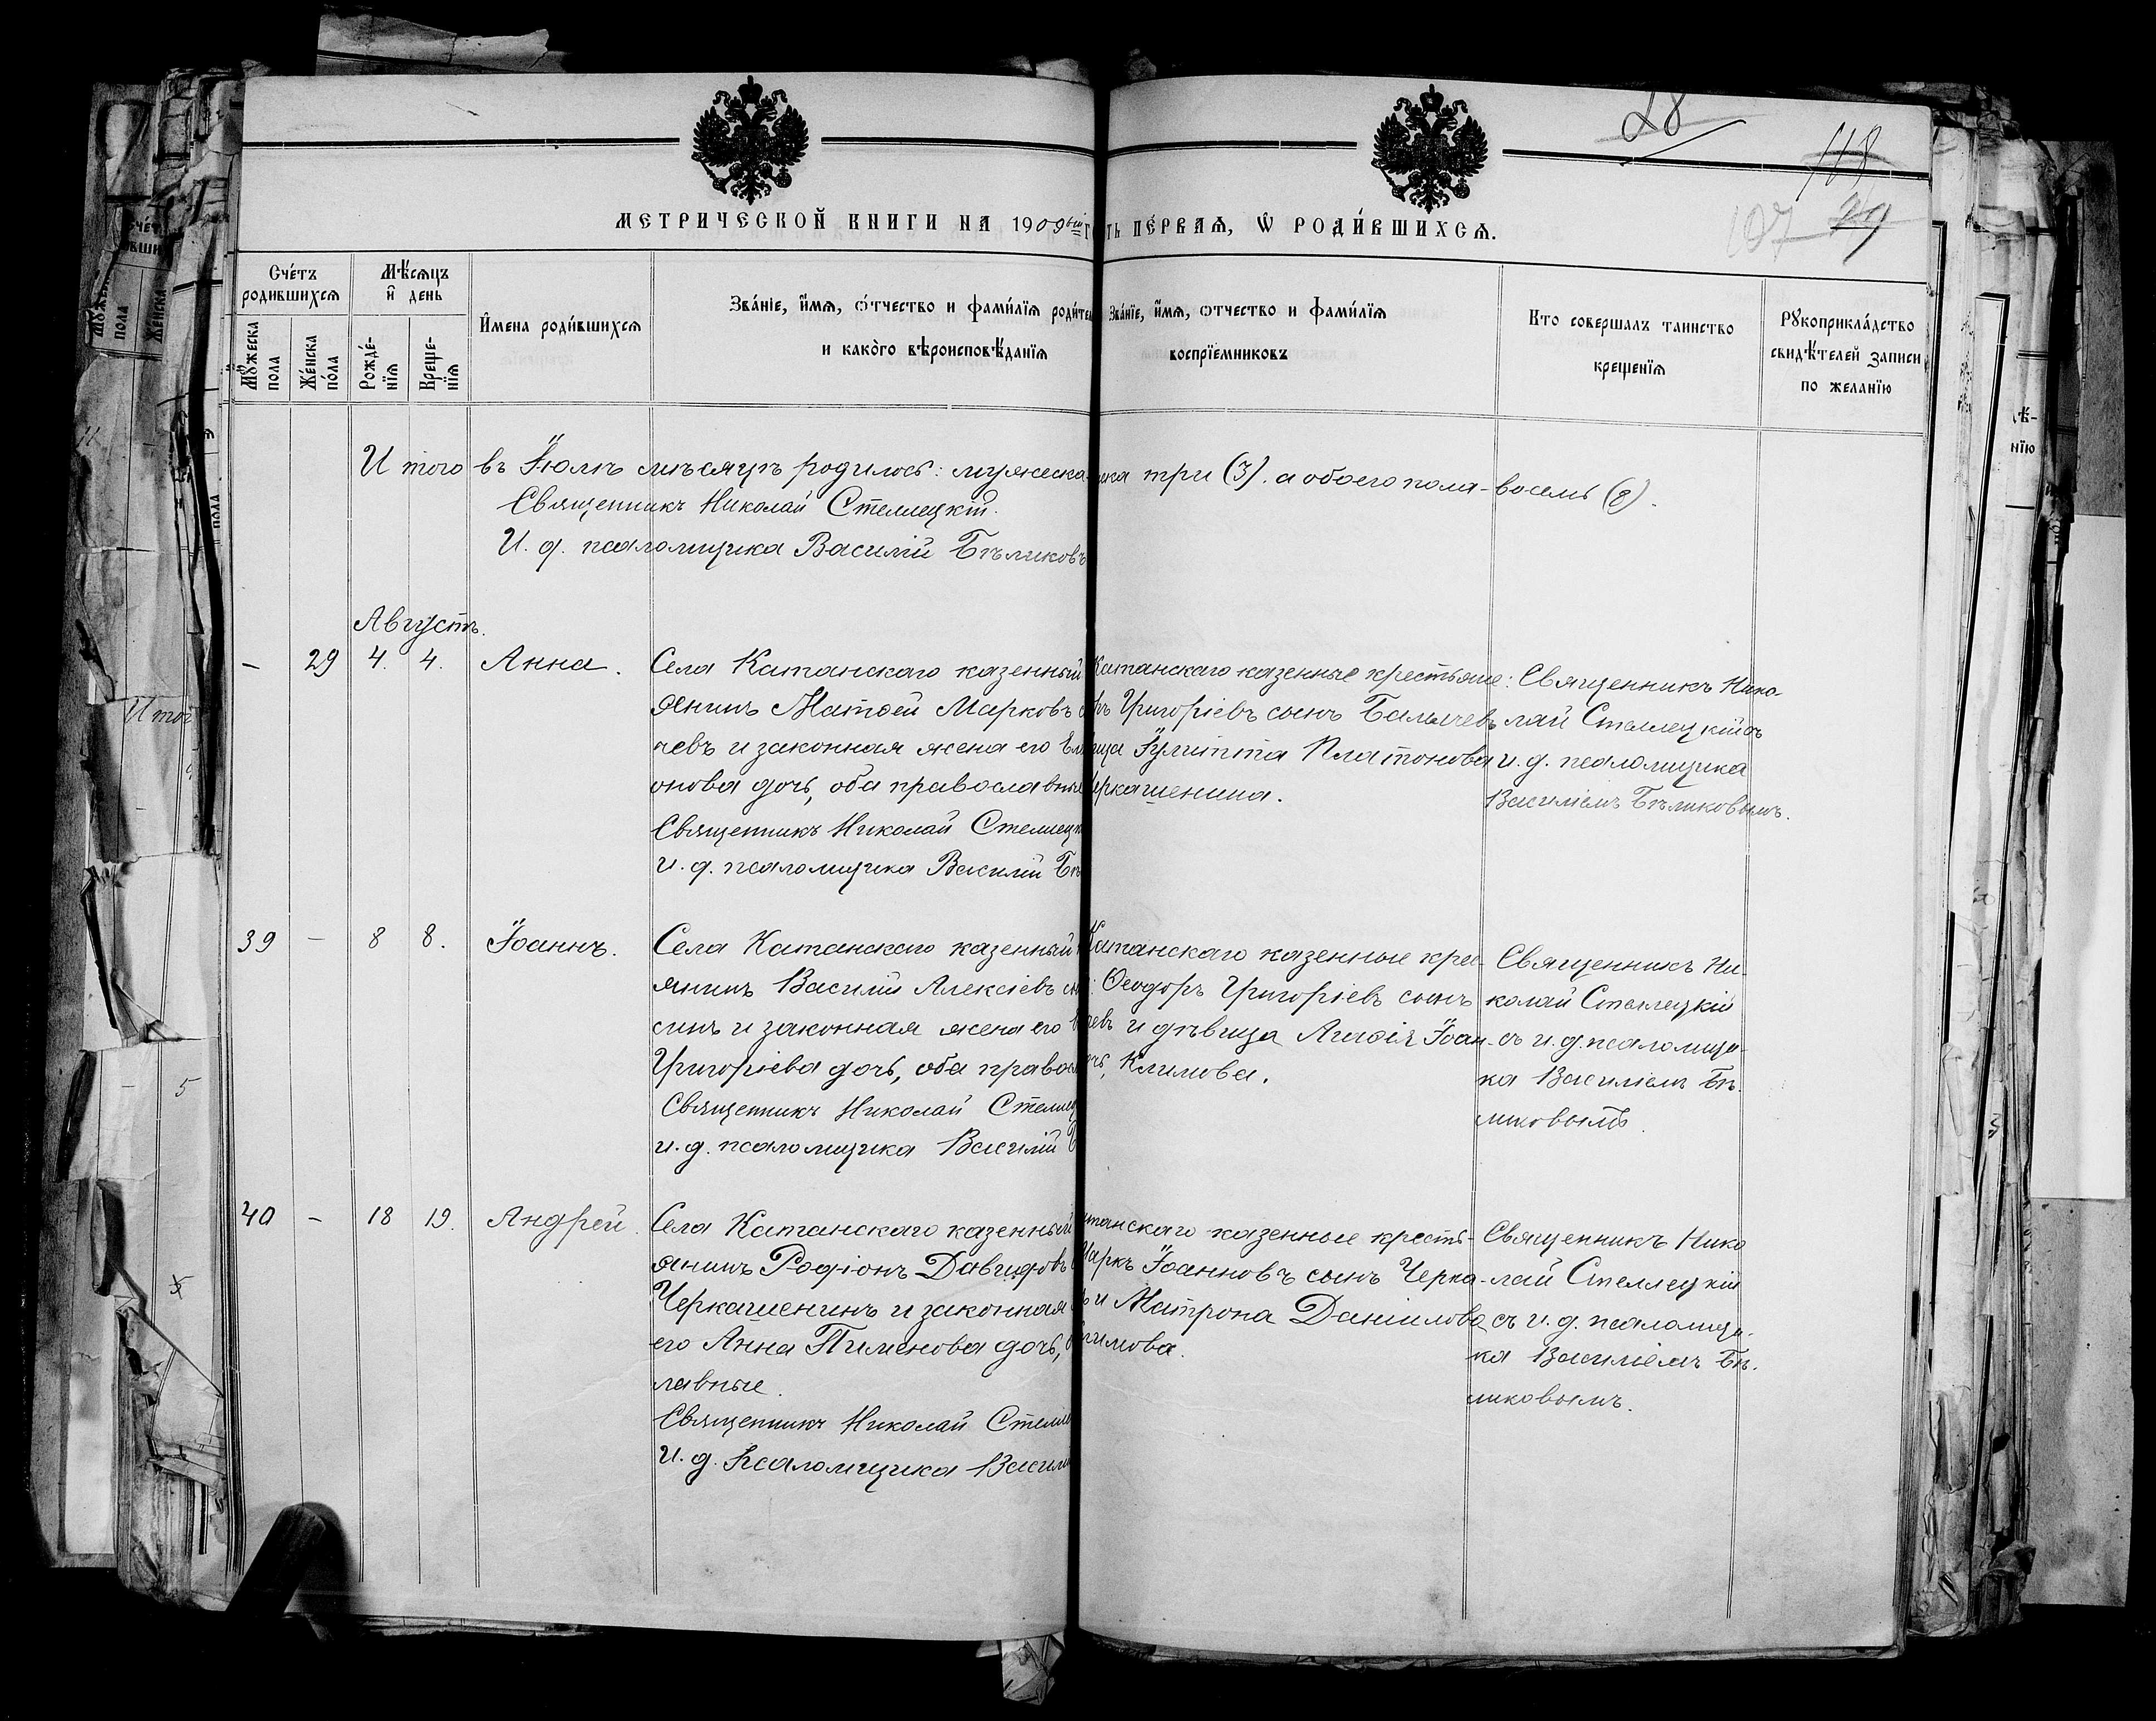 28
118
107 29
МЕТРИЧЕСКОЙ КНИГИ НА 1909ый г
ть ПЕ́РВАѦ, Ѡ҆ РОДИ́ВШИХСѦ.
Сче́тъ родившихсѧ
Мꙋ́жеска пола
Же́нска по́ла
Мѣ́сѧцъ и҆ день
Рожде́-нїѧ
Креще-нїѧ
И҆мена роди́вшихсѧ
Зва́нїе, и҆́мѧ, ѻ҆́тчество и фами́лїѧ роди́тел
и како́го вѣроисповѣ́данїѧ
Зва́нїе, и҆́мѧ, ѻтчество и фами́лїѧ
воспрїе́мниковъ
Кто совершалъ таинство
креще́нїѧ
Рꙋкоприкла́дство
свидѣ́телей записи
по желанїю
Итого въ Іюлѣ мѣсяцѣ родилось: мужеска
ска три (3). а обоего пола - восемь (8).
Священникъ Николай Стеллецкій.
И. д. псаломщика Василій Бѣликовъ
Августъ.
– 29 4. 4. Анна.
Села Катанскаго казенный
янинъ Матѳей Марковъ с
чевъ и законная жена его Ел
онова дочь, оба православные
Священникъ Николай Стеллецк
и. д. псаломщика Василій Бѣ
Катанскаго казенные крестьяне:
ръ Григоріевъ сынъ Балычевъ
ица Іулитта Платонова
еркашенина.
Священникъ Нико-
лай Стеллецкій съ
и. д. псаломщика
Василіемъ Бѣликовымъ.
39 – 8 8. Іоаннъ.
Села Катанскаго казенный
янинъ Василій Алексіевъ сы
синъ и законная жена его
Григоріева дочь, оба правос
Священникъ Николай Стеллец
и. д. псаломщика Василій Б
Катанскаго казенные крес-
: Ѳеодоръ Григоріевъ сынъ
чевъ и дѣвица Агаѳія Іоан-
чь, Климова.
Священникъ Ни-
колай Стеллецкій
съ и. д. псаломщи-
ка Василіемъ Бѣ-
ликовымъ.
40 – 18 19. Андрей.
Села Катанскаго казенный
янинъ Родіонъ Давидовъ
Черкашенинъ и законная
его Анна Пименова дочь,
лавные.
Священникъ Николай Стелле
И. д. псаломщика Васили
танскаго казенные кресть-
Маркъ Іоанновъ сынъ Черка-
ъ и Матрона Даніилова
лимова.
Священникъ Нико
лай Стеллецкій
съ и. д. псаломщи-
ка Василіемъ Бѣ-
ликовымъ.